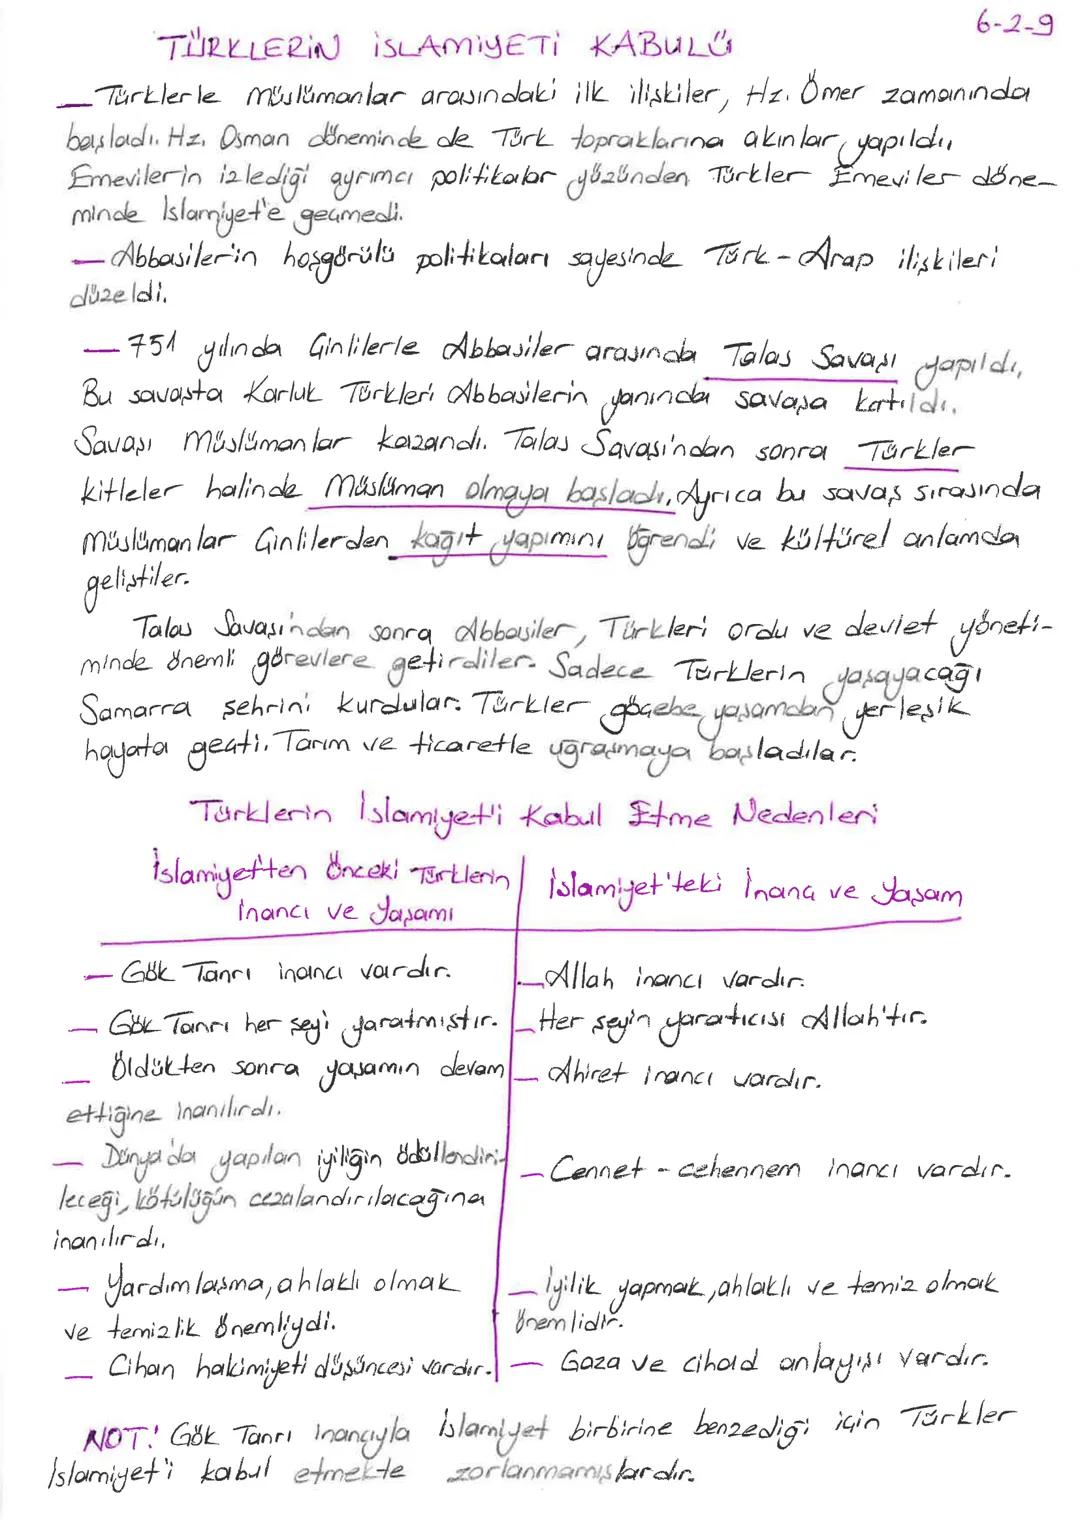 6-2-9
TÜRKLERİN İSLAMİYETİ KABULÜ
— Türklerle Müslümanlar arasındaki ilk ilişkiler, Hz. Ömer zamanında
başladı. Hz. Osman döneminde de Türk topraklarına akınlar yapıldı,
Emevilerin izlediği ayrımcı politikalar yüzünden Türkler Emeviler döne-
minde İslamiyet'e geçmedi.
— Abbasiler'in hoşgörülü politikaları sayesinde Türk-Arap ilişkileri
düzeldi.
— 751 yılında Çinlilerle Abbasiler arasında Talas Savaşı yapıldı,
Bu savaşta Karluk Türkleri Abbasilerin yanında savaşa katıldı.
Savaşı Müslümanlar kazandı. Talas Savaşı'ndan sonra Türkler
kitleler halinde Müslüman olmaya başladı. Ayrıca bu savaş sırasında
Müslümanlar Çinlilerden kağıt yapımını öğrendi ve kültürel anlamda
geliştiler.
Talas Savaşından sonra Abbasiler, Türkleri ordu ve devlet yöneti-
minde önemli görevlere getirdiler. Sadece Türklerin yaşayacağı
Samarra şehrini kurdular. Türkler göçebe yaşamdan yerleşik
hayata geçti. Tarım ve ticaretle uğraşmaya başladılar.
Türklerin İslamiyet'i Kabul Etme Nedenleri
İslamiyet'ten Önceki Türklerin
İnancı ve Yaşamı
— Gök Tanrı inancı vardır.
— Gök Tanrı her şeyi yaratmıştır.
— Öldükten sonra yaşamın devam
ettiğine inanılırdı.
— Dünya'da yapılan iyiliğin ödüllendiri-
leceği, kötülüğün cezalandırılacağına
inanılırdı.
— Yardımlaşma, ahlaklı olmak
ve temizlik önemliydi.
— Cihan hakimiyeti düşüncesi vardır.
İslamiyet'teki İnanç ve Yaşam
— Allah inancı vardır.
— Her şeyin yaratıcısı Allah'tır.
— Ahiret inancı vardır.
— Cennet - cehennem inancı vardır.
— İyilik yapmak, ahlaklı ve temiz olmak
önemlidir.
— Gaza ve cihad anlayışı vardır.
NOT: Gök Tanrı inancıyla İslamiyet birbirine benzediği için Türkler
İslamiyet'i kabul etmekte zorlanmamışlardır.